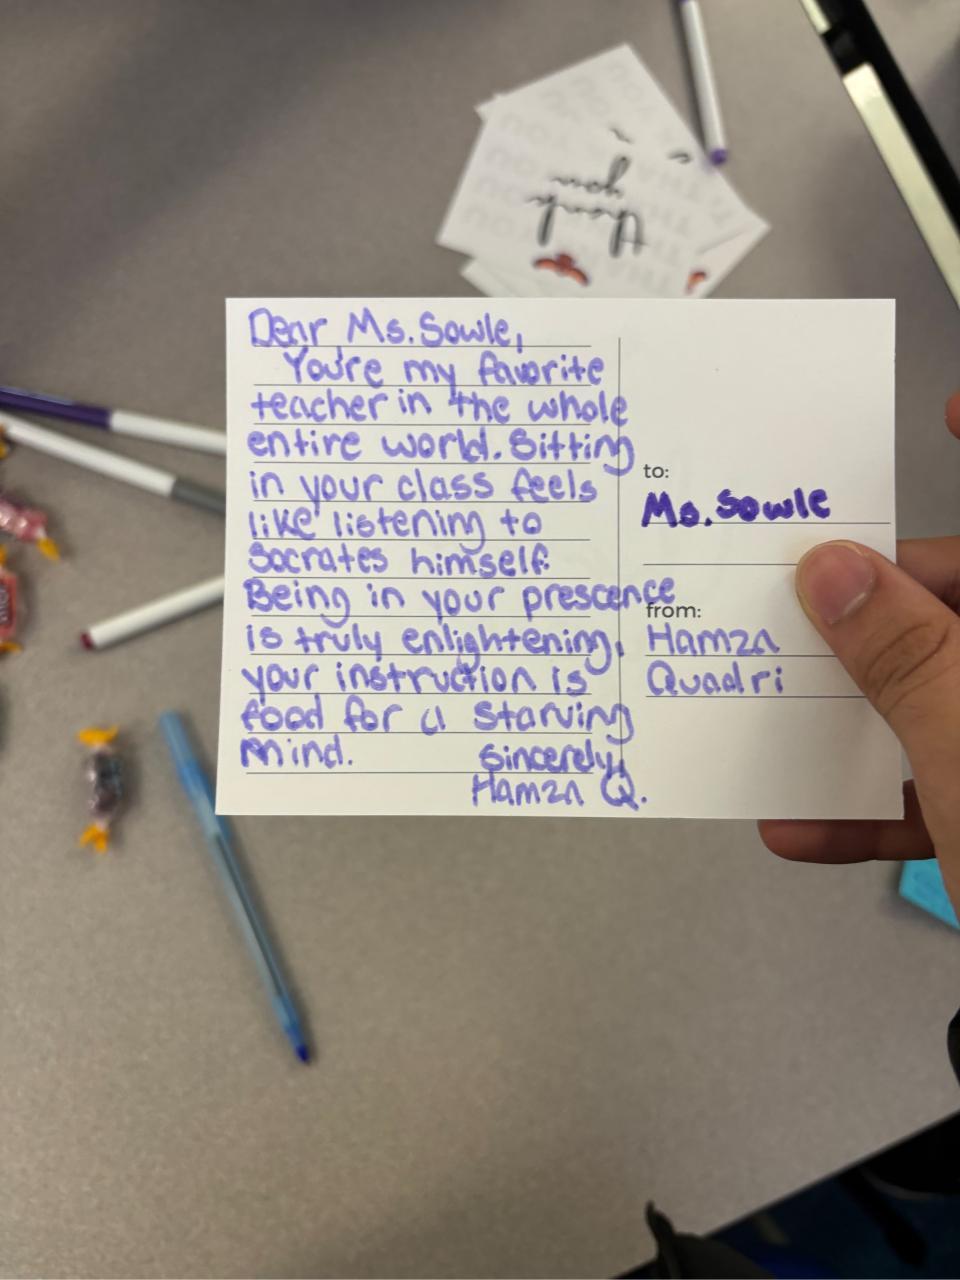 Dear Ms. Sowle,
You're my favorite
teacher in the whole
entire world. Sitting
in your class feels
like listening to
Socrates himself.
Being in your prescence
is truly enlightening,
your instruction is
food for a starving
mind.
Sincerely,
Hamza Q.
to:
Ms. Sowle
from:
Hamza
Quadri
Thank
you